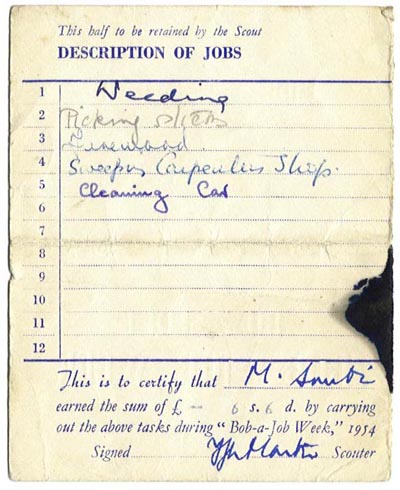 This half to be retained by the Scout
DESCRIPTION OF JOBS
1 Weeding
2 Picking
3 Firewood.
4 Sweeping Carpenters Shop.
5 Cleaning Car
6
7
8
9
10
11
12
This is to certify that M.
earned the sum of £ — 6 s. 6 d. by carrying
out the above tasks during "Bob-a-Job Week," 1954
Signed Scouter